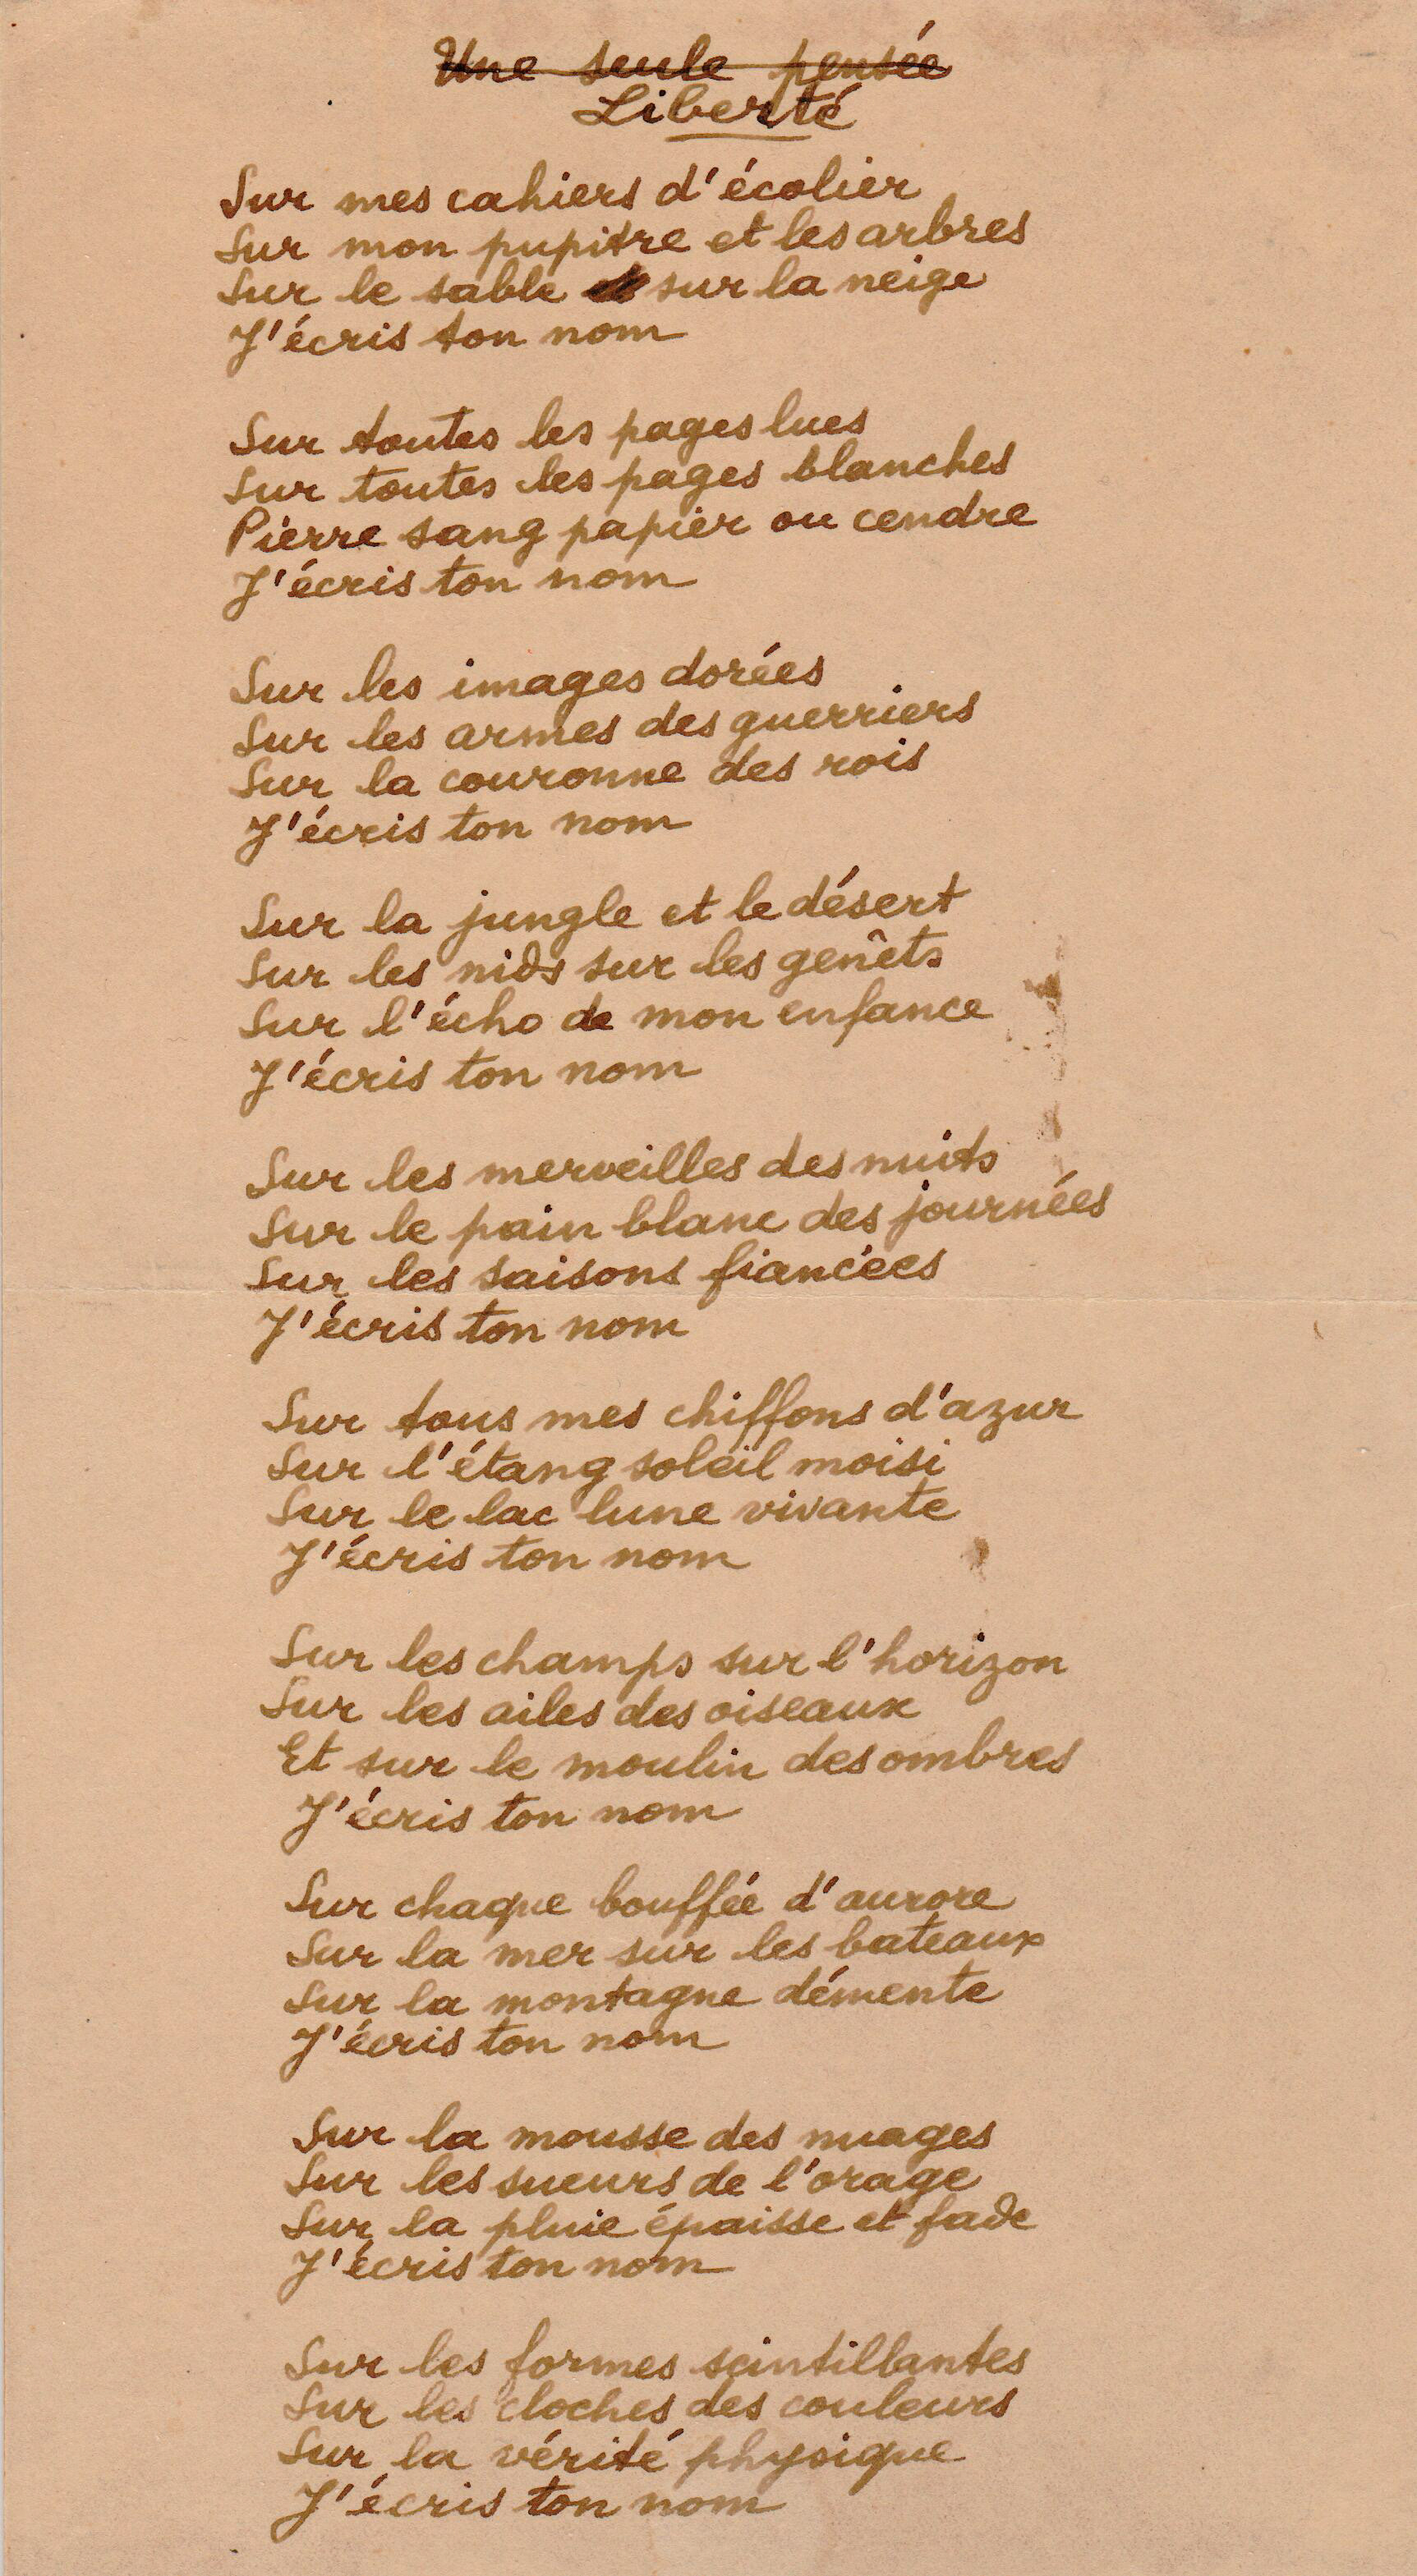 Une seule pensée
Liberté
Sur mes cahiers d'écolier
Sur mon pupitre et les arbres
Sur le sable sur la neige
J'écris ton nom
Sur toutes les pages lues
Sur toutes les pages blanches
Pierre sang papier ou cendre
J'écris ton nom
Sur les images dorées
Sur les armes des guerriers
Sur la couronne des rois
J'écris ton nom
Sur la jungle et le désert
Sur les nids sur les genêts
Sur l'écho de mon enfance
J'écris ton nom
Sur les merveilles des nuits
Sur le pain blanc des journées
Sur les saisons fiancées
J'écris ton nom
Sur tous mes chiffons d'azur
Sur l'étang soleil moisi
Sur le lac lune vivante
J'écris ton nom
Sur les champs sur l'horizon
Sur les ailes des oiseaux
Et sur le moulin des ombres
J'écris ton nom
Sur chaque bouffée d'aurore
Sur la mer sur les bateaux
Sur la montagne démente
J'écris ton nom
Sur la mousse des nuages
Sur les sueurs de l'orage
Sur la pluie épaisse et fade
J'écris ton nom
Sur les formes scintillantes
Sur les cloches des couleurs
Sur la vérité physique
J'écris ton nom